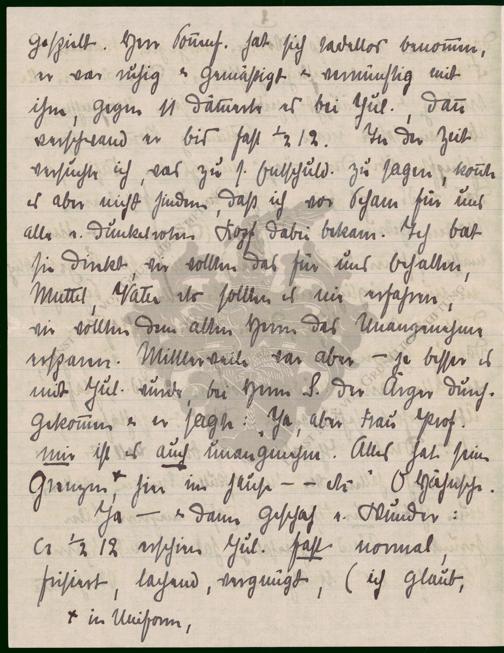 gespielt. Herr Sömf. hat sich tadellos benomm̄en,
er war ruhig & gemäßigt & vernünftig mit
ihm, gegen 11 dämmerte es bei Jul., dann
verschwand er bis fast ½ 12. In der Zeit
versuchte ich, was zu s. Entschuld. zu sagen, konnte
es aber nicht hindern, daß ich vor Scham für uns
alle e. dunkelroten Kopf dabei bekam. Ich bat
sie direkt, wir wollten das für uns behalten,
Muttel, Vater etc sollten es nie erfahren,
wir wollten dem alten Herrn das Unangenehme
ersparen. Mittlerweile war aber – je besser es
mit Jul. wurde, bei Herrn S. der Ärger durch-
gekommen & er sagte: Ja, aber Frau Prof.
mir ist es auch unangenehm. Alles hat seine
Grenzen, hier im Hause – – etc" O Hähnsche.
Ja – & dann geschah e. Wunder:
Ca ½ 12 erschien Jul. fast normal,
frisiert, lachend, vergnügt, (ich glaub,
+ in Uniform,